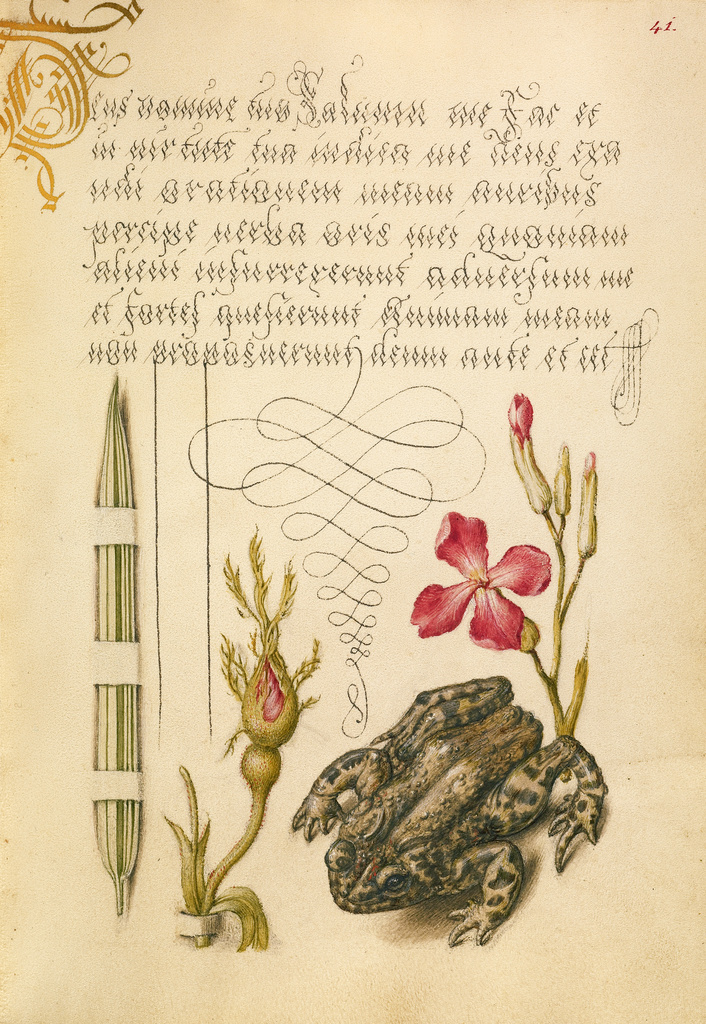 41.
Deus nomine tuo Salvum me Fac et
in virtute tua iudica me Deus exa
udi orationem meam auribus
percipe verba oris mei Quoniam
alieni insurrexerunt adversum me
et fortes quesierunt Animam meam
non proposuerunt deum ante et cet